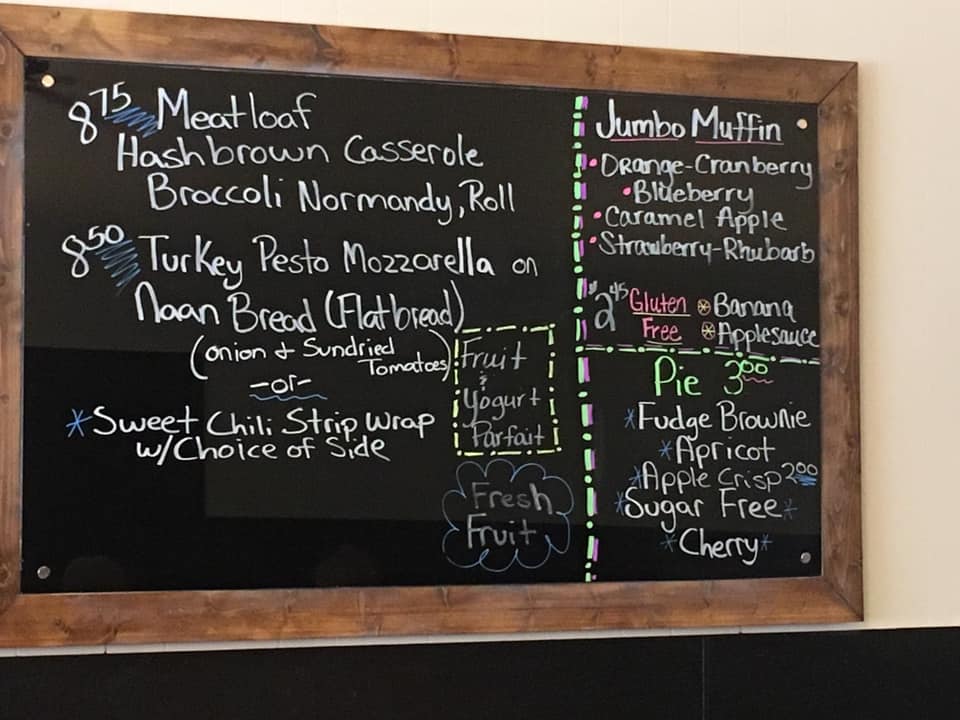 8 75 Meatloaf
Hashbrown Casserole
Broccoli Normandy, Roll
8 50 Turkey Pesto Mozzarella on
Naan Bread (Flatbread)
(onion & Sundried
Tomatoes)
-or-
*Sweet Chili Strip Wrap
w/Choice of Side
Fruit
&
Yogurt
Parfait
Fresh
Fruit
Jumbo Muffin
• Orange-Cranberry
• Blueberry
• Caramel Apple
• Strawberry-Rhubarb
$2 45 Gluten Free
Banana
Applesauce
Pie 3 00
*Fudge Brownie
*Apricot
*Apple Crisp 2 00
*Sugar Free*
*Cherry*